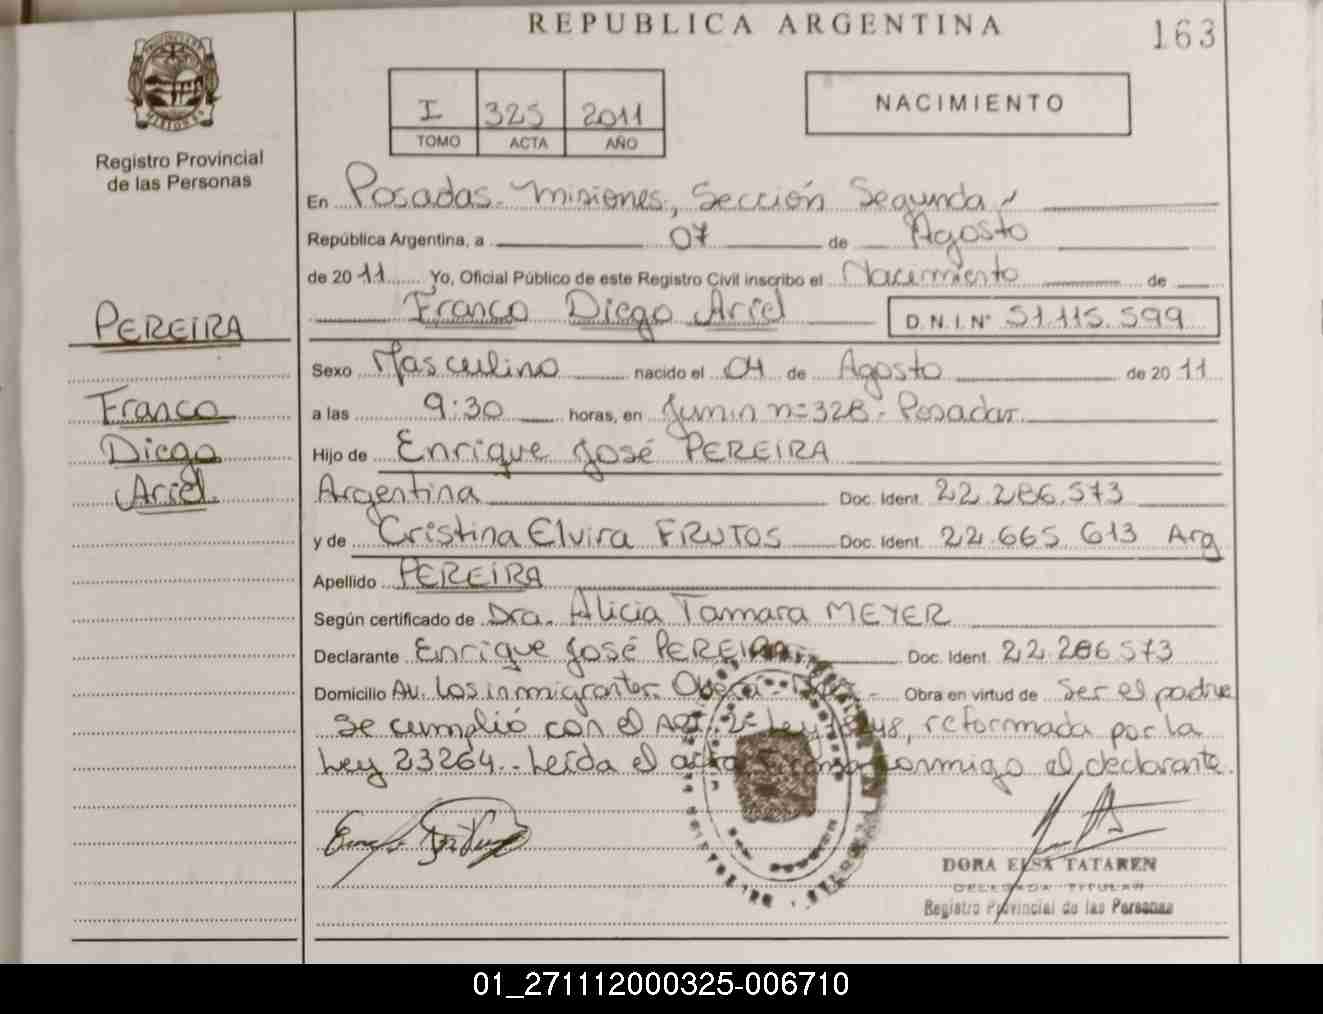 REPUBLICA ARGENTINA
163
I 325 2011
TOMO ACTA AÑO
NACIMIENTO
Registro Provincial
de las Personas
En Posadas - Misiones, Sección Segunda
República Argentina, a 07 de Agosto
de 2011 Yo, Oficial Público de este Registro Civil inscribo el Nacimiento de
Franco Diego Ariel D.N.I.Nº 51.115.599
PEREIRA
Franco
Diego
Ariel
Sexo Masculino nacido el 04 de Agosto de 2011
a las 9:30 horas, en Junin n=328 - Posadas
Hijo de Enrique José PEREIRA
Argentina Doc. Ident. 22.286.573
y de Cristina Elvira FRUTOS Doc. Ident. 22.665.613 Arg
Apellido PEREIRA
Según certificado de Dra. Alicia Tamara MEYER
Declarante Enrique José PEREIRA Doc. Ident. 22.286.573
Domicilio Av. Los inmigrantes - Obra en virtud de Ser el padre
Se cumplió con el Art. 2= Ley reformada por la
Ley 23264.. Leída el acta conmigo el declarante.
DORA ELSA TATAREN
DELEGADA TITULAR
Registro Provincial de las Personas
01_271112000325-006710